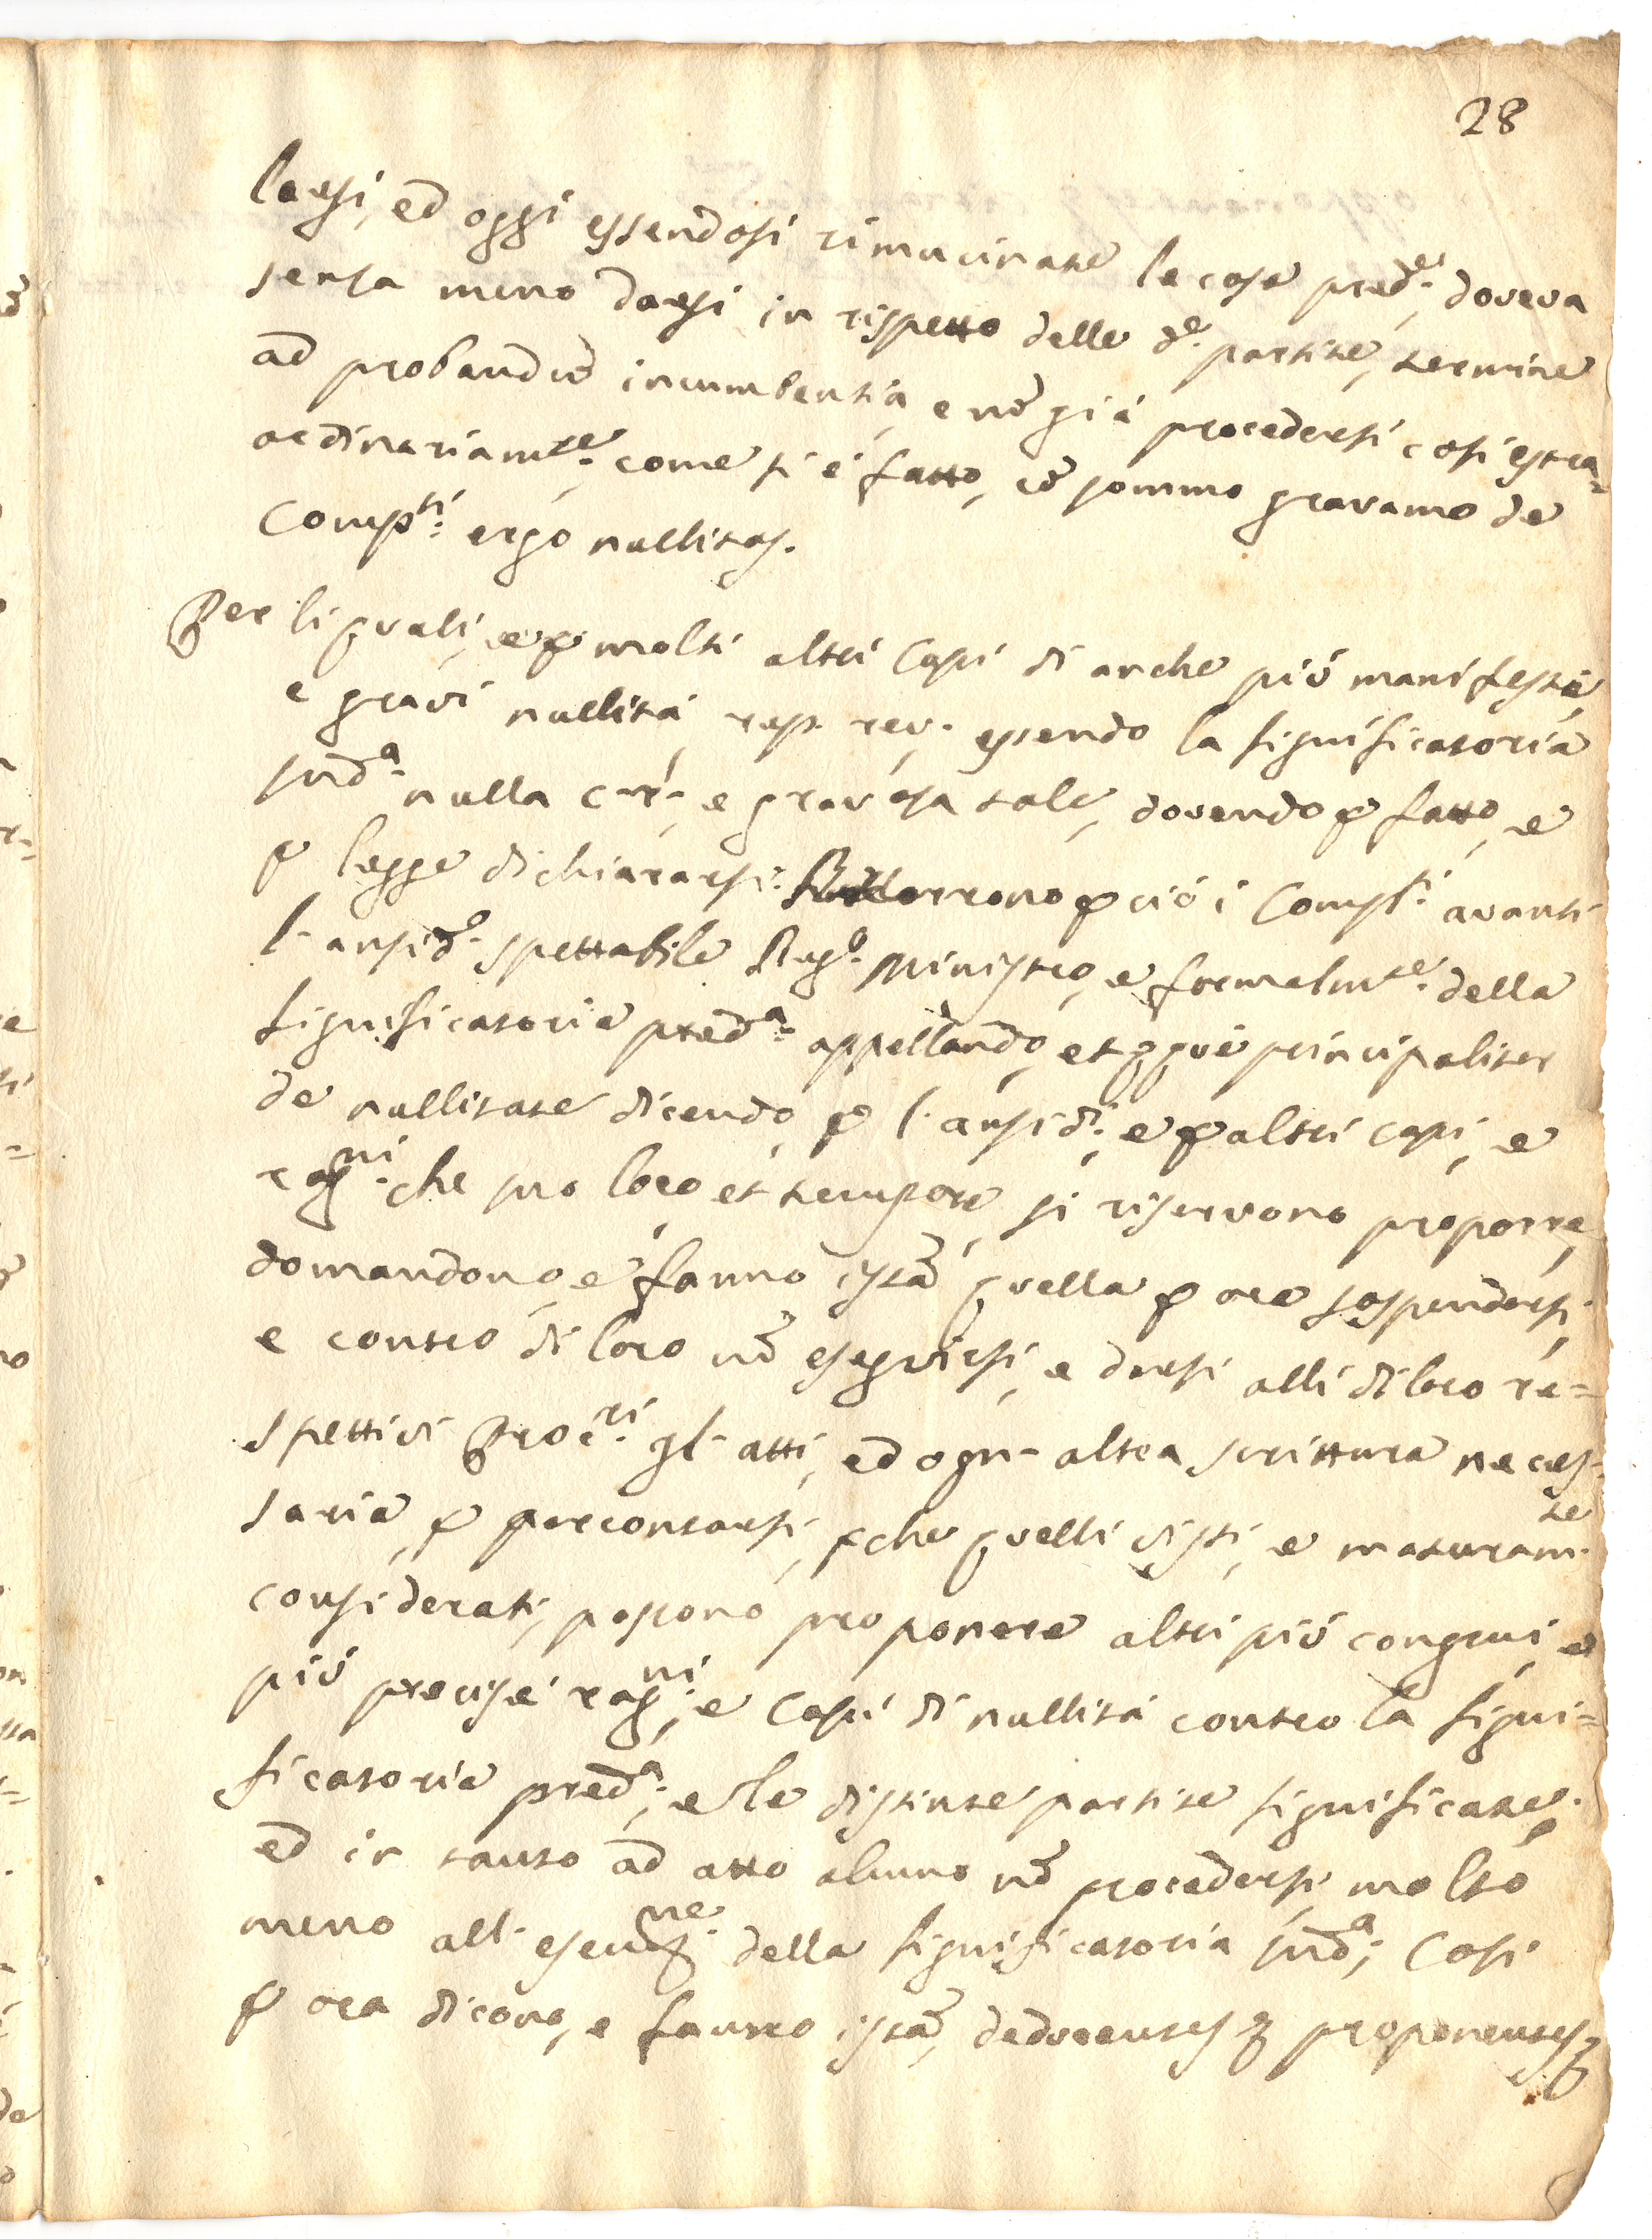 28
larsi, ed oggi essendosi rimucinate le cose pred.e, doveva
senza meno darsi in rispetto delle d.e partite, termine
ad probandũ incumbentia, e nõ giá procedersi cosi estra=
ordinariam.te, come si é fatto, cõ sommo gravame de
Comp.ti: ergo nullitas.
Per li quali, e p molti altri Capi di anche piú manifesta,
e gravi nullitá, resp. rev. essendo la significatoria
sud.a nulla, e gravosa tale, dovendo p fatto, e
p legge dichiararsi. Ricorrono p ció i Comp.ti avanti
l'ansid.o spettabile Reg.o Ministro, e formalm.te della
significatoria pred.a appellando, et principaliter
de nullitate dicendo, p l'ansid.i, e p altri capi, e
rag.ni che suo loco, et tempore si riservono proporre,
domandono, e fanno istã quella p ora sospendersi,
e contro di loro nõ eseguirsi, e darsi alli di loro re=
spettivi Proc.ri gl'atti, ed ogn'altra scrittura neces=
saria p porcontarsi, pche quelli visti, e maturam.te
considerati, possono proponere altri piú congrui, e
piú precise rag.ni, e Capi di nullitá contro la signi=
ficatoria pred.a, e le distinte partite significate,
ed in tanto ad atto alcuno nõ procedersi, molto
meno all'esecuz.ne della significatoria sud.a; Cosi
p ora dicono, e fanno istã,